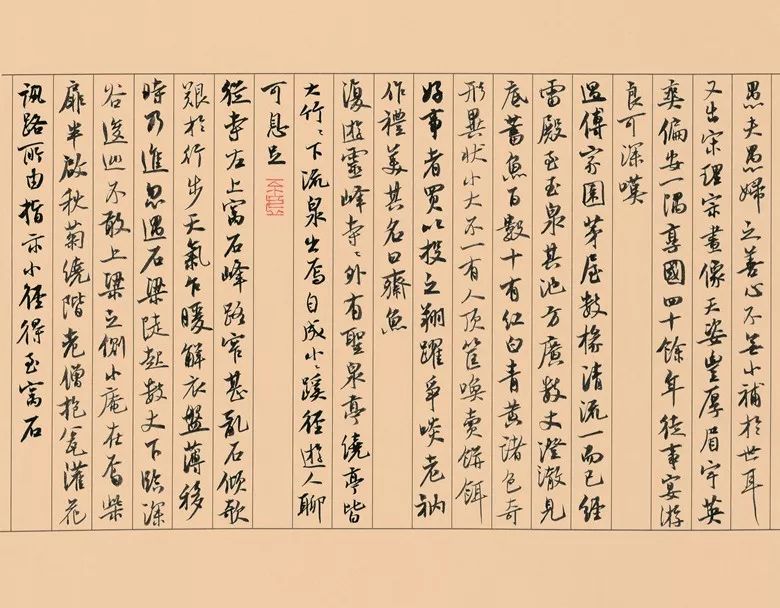 愚夫愚婦之善心不無小補於世耳
又出宋理宗畫像天姿豐厚眉宇英
爽偏安一隅享國四十餘年徒事宴游
良可深嘆
過傅家園茅屋數椽清流一而已經
雷殿至玉泉其池方廣數丈澄澈見
底蓄魚百數十有紅白青黃諸色奇
形異狀小大不一有人頂筐喚賣餅餌
好事者買以投之翔躍爭啖老衲
作禮美其名曰齋魚
復遊靈峰寺〻外有聖泉亭繞亭皆
大竹〻下流泉出焉自成小〻蹊徑遊人聊
可息足
從寺右上窩石峰路窄甚亂石傾欹
艱於行步天氣乍暖解衣盤薄移
時乃進忽遇石梁陡起數丈下臨深
谷逡巡不敢上梁之側小庵在焉柴
扉半啟秋菊繞階老僧抱瓮灌花
訊路所由指示小徑得至窩石